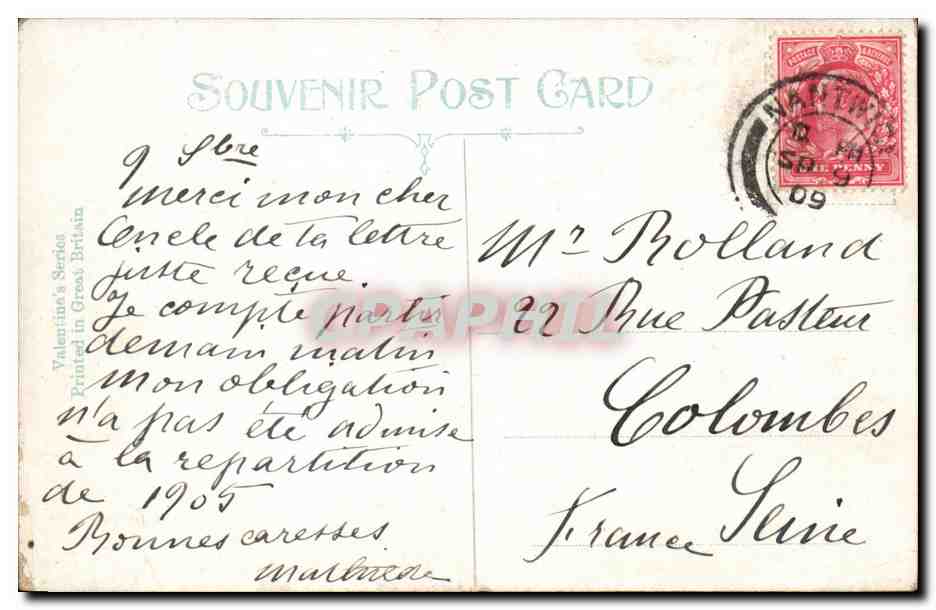 SOUVENIR POST CARD
Valentine's Series
Printed in Great Britain
9 9bre
Merci mon cher
Oncle de ta lettre
juste reçue
Je compte partir
demain matin
Mon obligation
n'a pas été admise
à la repartition
de 1905
Bonnes caresses
Mathilde
POSTAGE REVENUE
ONE PENNY
NANTWICH
PM
SP 9
09
Mr Rolland
22 Rue Pasteur
Colombes
Seine
France
CPAPHIL